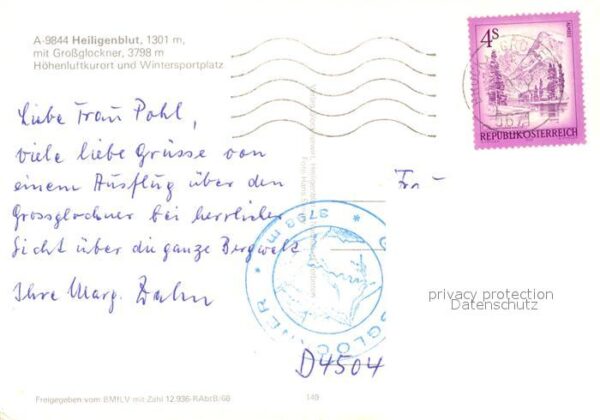 A-9844 Heiligenblut, 1301 m,
mit Großglockner, 3798 m
Höhenluftkurort und Wintersportplatz
4s
REPUBLIK ÖSTERREICH
Liebe Frau Pohl,
viele liebe Grüsse von
einem Ausflug über den
Grossglockner bei herrlicher
Sicht über die ganze Bergwelt
Ihre Marg. Dahn
Frau
* 3798 m *
GLOCKNER
privacy protection
Datenschutz
D4504
Freigegeben vom BMfLV mit Zahl 12.936-RAbtB/68
149